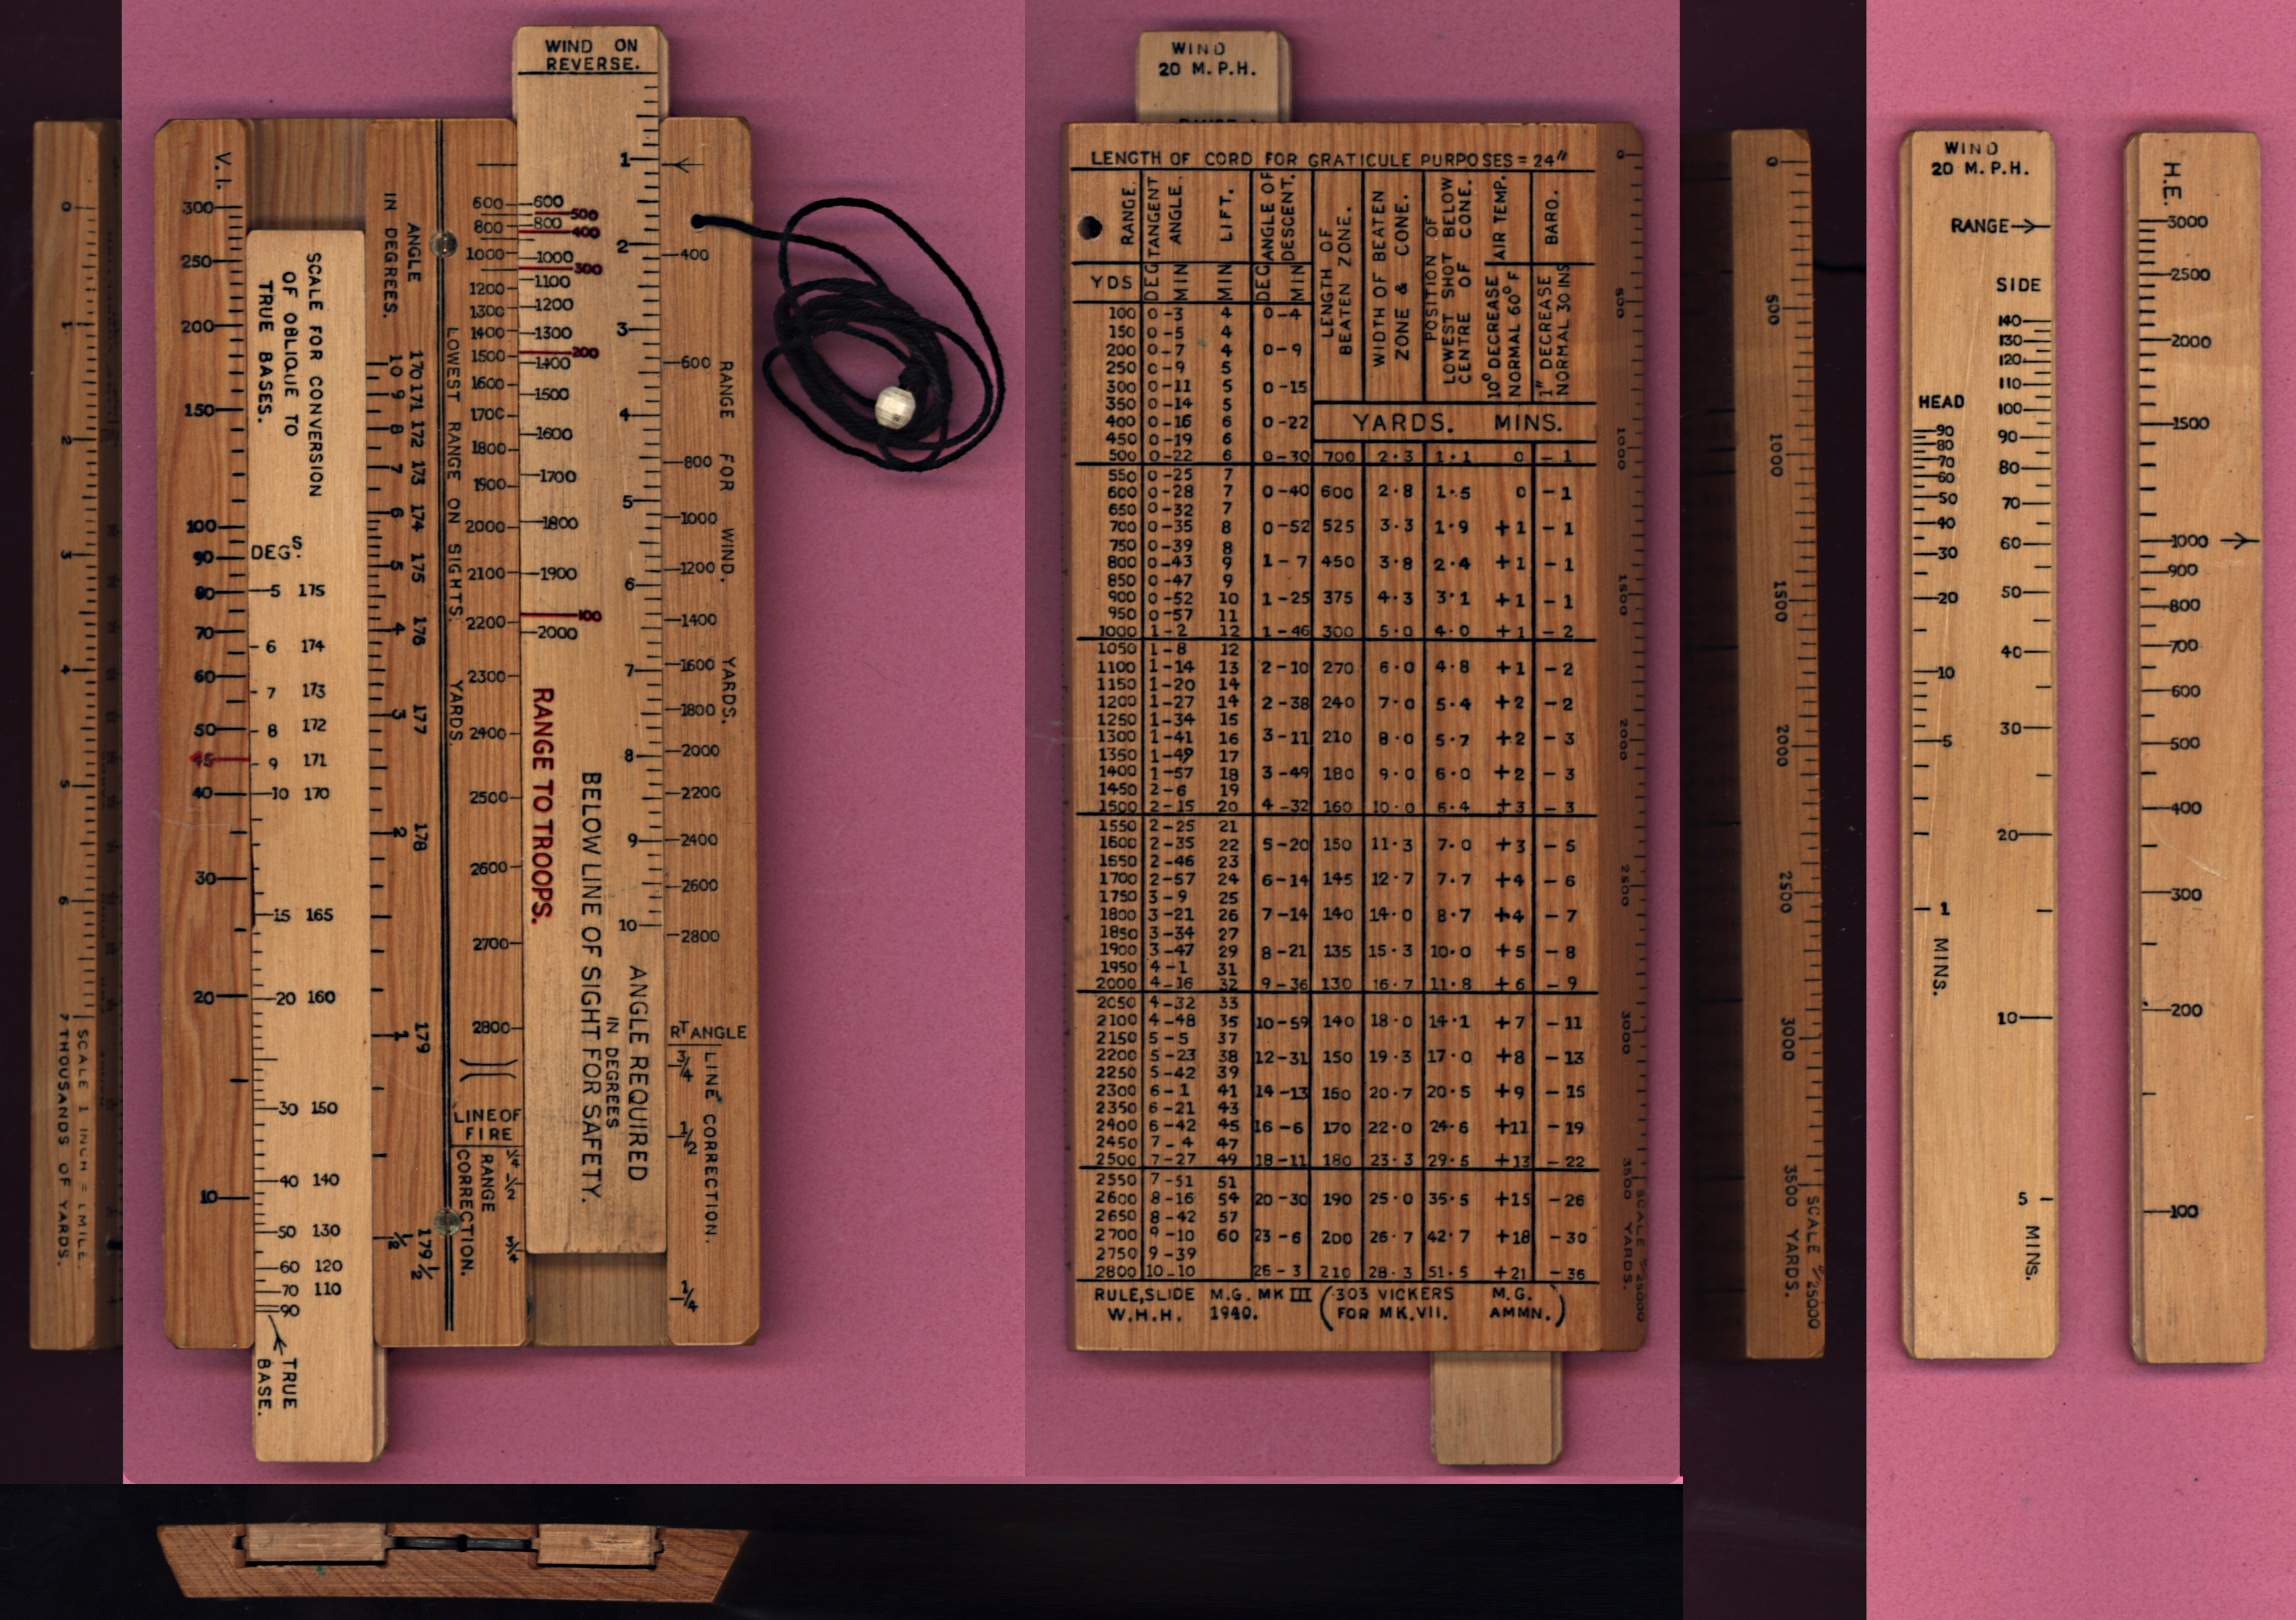 0
1
2
3
4
5
6
7 THOUSANDS OF YARDS.
SCALE 1 INCH = 1 MILE.
V.I.
300
250
200
150
100
90
80
70
60
50
45
40
30
20
10
SCALE FOR CONVERSION
OF OBLIQUE TO
TRUE BASES.
DEGS.
5 175
6 174
7 173
8 172
9 171
10 170
15 165
20 160
30 150
40 140
50 130
60 120
70 110
90
TRUE
BASE.
ANGLE
IN DEGREES.
10 170
9 171
8 172
7 173
6 174
5 175
4 176
3 177
2 178
1 179
1/2 179 1/2
LOWEST RANGE ON SIGHTS. YARDS.
600
800
1000
1200
1300
1400
1500
1600
1700
1800
1900
2000
2100
2200
2300
2400
2500
2600
2700
2800
LINE OF
FIRE
RANGE
CORRECTION.
1/4
1/2
3/4
WIND ON
REVERSE.
600
800
1000
1100
1200
1300
1400
1500
1600
1700
1800
1900
2000
500
400
300
200
100
RANGE TO TROOPS.
BELOW LINE OF SIGHT FOR SAFETY.
ANGLE REQUIRED
IN DEGREES
1
2
3
4
5
6
7
8
9
10
400
600
800
1000
1200
1400
1600
1800
2000
2200
2400
2600
2800
RANGE FOR WIND. YARDS.
RT ANGLE
3/4
1/2
1/4
LINE CORRECTION.
WIND
20 M.P.H.
LENGTH OF CORD FOR GRATICULE PURPOSES = 24"
RANGE.
TANGENT ANGLE.
LIFT.
ANGLE OF DESCENT.
LENGTH OF BEATEN ZONE.
WIDTH OF BEATEN ZONE & CONE.
POSITION OF LOWEST SHOT BELOW CENTRE OF CONE.
AIR TEMP.
10° DECREASE NORMAL 60° F
BARO.
1" DECREASE NORMAL 30 INS
YDS DEG MIN MIN DEG MIN
YARDS. MINS.
100 0-3 4 0-4
150 0-5 4
200 0-7 4 0-9
250 0-9 5
300 0-11 5 0-15
350 0-14 5
400 0-16 6 0-22
450 0-19 6
500 0-22 6 0-30 700 2·3 1·1 0 -1
550 0-25 7
600 0-28 7 0-40 600 2·8 1·5 0 -1
650 0-32 7
700 0-35 8 0-52 525 3·3 1·9 +1 -1
750 0-39 8
800 0-43 9 1-7 450 3·8 2·4 +1 -1
850 0-47 9
900 0-52 10 1-25 375 4·3 3·1 +1 -1
950 0-57 11
1000 1-2 12 1-46 300 5·0 4·0 +1 -2
1050 1-8 12
1100 1-14 13 2-10 270 6·0 4·8 +1 -2
1150 1-20 14
1200 1-27 14 2-38 240 7·0 5·4 +2 -2
1250 1-34 15
1300 1-41 16 3-11 210 8·0 5·7 +2 -3
1350 1-49 17
1400 1-57 18 3-49 180 9·0 6·0 +2 -3
1450 2-6 19
1500 2-15 20 4-32 160 10·0 6·4 +3 -3
1550 2-25 21
1600 2-35 22 5-20 150 11·3 7·0 +3 -5
1650 2-46 23
1700 2-57 24 6-14 145 12·7 7·7 +4 -6
1750 3-9 25
1800 3-21 26 7-14 140 14·0 8·7 +4 -7
1850 3-34 27
1900 3-47 29 8-21 135 15·3 10·0 +5 -8
1950 4-1 31
2000 4-16 32 9-36 130 16·7 11·8 +6 -9
2050 4-32 33
2100 4-48 35 10-59 140 18·0 14·1 +7 -11
2150 5-5 37
2200 5-23 38 12-31 150 19·3 17·0 +8 -13
2250 5-42 39
2300 6-1 41 14-13 160 20·7 20·5 +9 -15
2350 6-21 43
2400 6-42 45 16-6 170 22·0 24·6 +11 -19
2450 7-4 47
2500 7-27 49 18-11 180 23·3 29·5 +13 -22
2550 7-51 51
2600 8-16 54 20-30 190 25·0 35·5 +15 -26
2650 8-42 57
2700 9-10 60 23-6 200 26·7 42·7 +18 -30
2750 9-39
2800 10-10 26-3 210 28·3 51·5 +21 -36
RULE, SLIDE M.G. MK III (.303 VICKERS M.G.
W.H.H. 1940. FOR MK.VII. AMMN.)
0
500
1000
1500
2000
2500
3000
3500 YARDS.
SCALE 1/25000
0
500
1000
1500
2000
2500
3000
3500 YARDS.
SCALE 1/25000
WIND
20 M.P.H.
RANGE
SIDE
140
130
120
110
100
90
80
70
60
50
40
30
20
10
5
MINS.
HEAD
90
80
70
60
50
40
30
20
10
5
1
MINS.
H.E.
3000
2500
2000
1500
1000
900
800
700
600
500
400
300
200
100